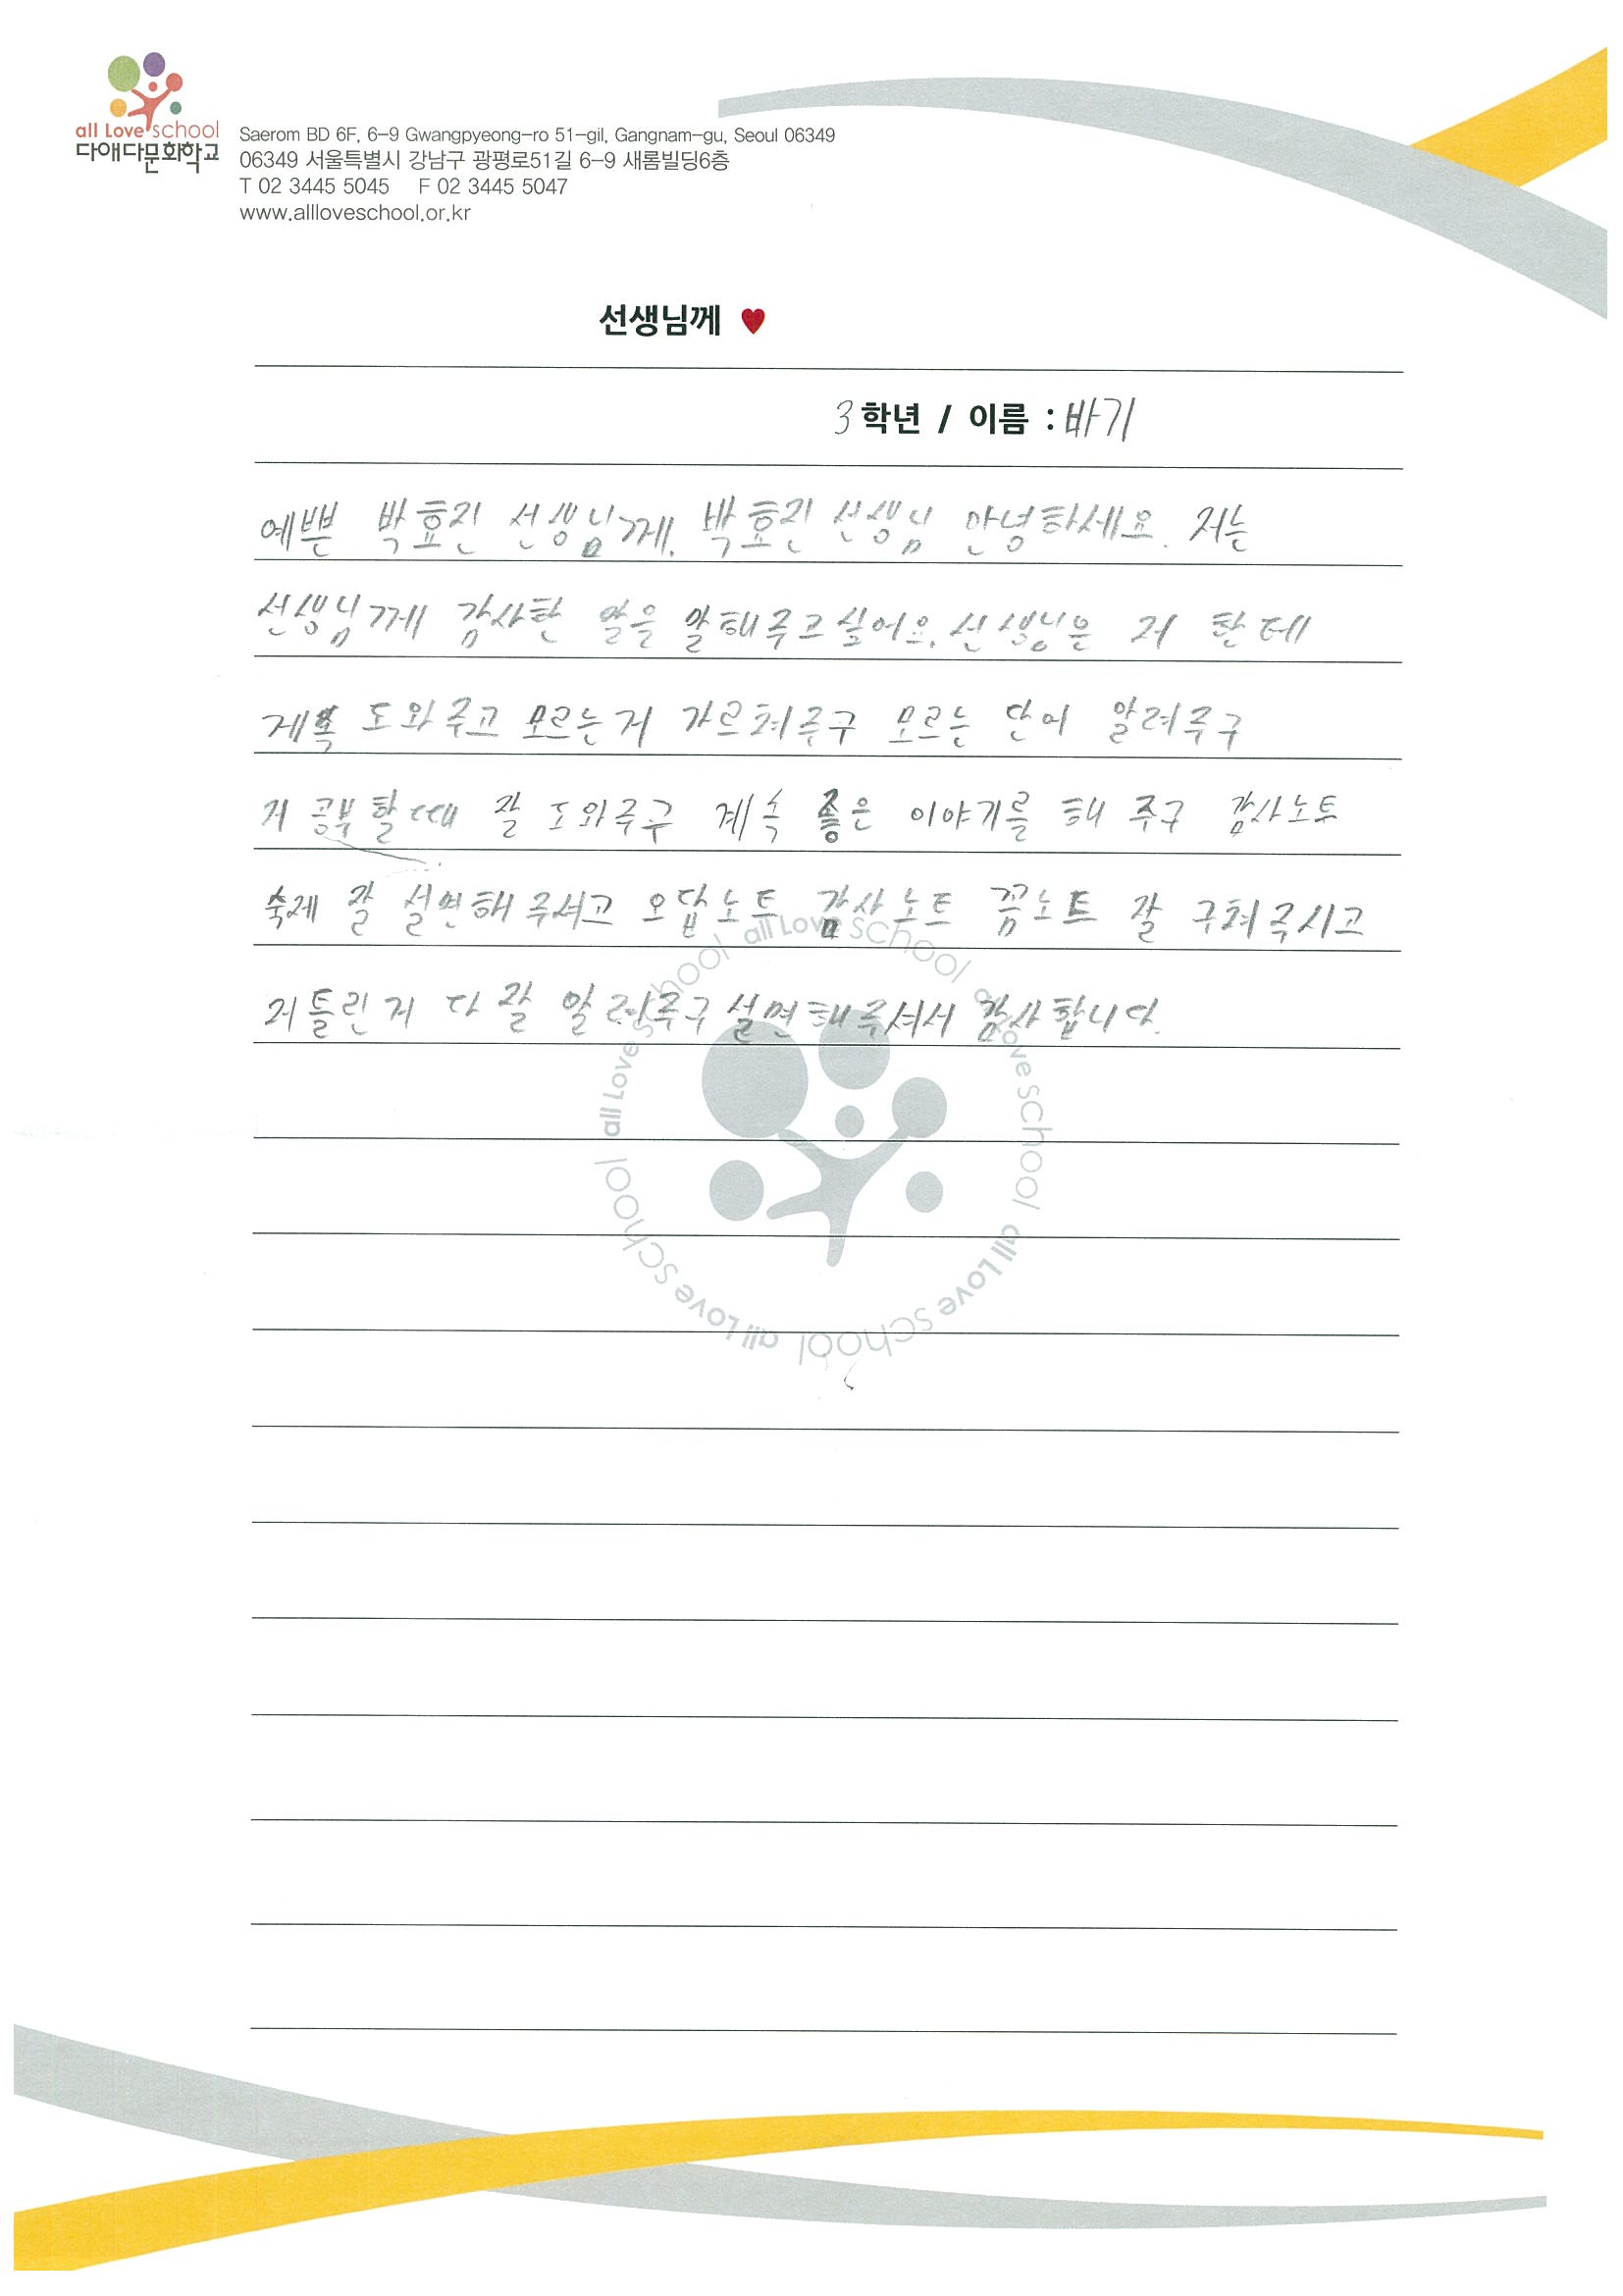 all Love school
다애다문화학교
Saerom BD 6F, 6-9 Gwangpyeong-ro 51-gil, Gangnam-gu, Seoul 06349
06349 서울특별시 강남구 광평로51길 6-9 새롬빌딩6층
T 02 3445 5045 F 02 3445 5047
www.allloveschool.or.kr
선생님께 ♥
3학년 / 이름 : 바기
예쁜 박효진 선생님께. 박효진 선생님 안녕하세요. 저는
선생님께 감사한 말을 말해주고싶어요. 선생님은 저 한테
계획 도와주고 모르는거 가르쳐주구 모르는 단어 알려주구
저 공부할때 잘 도와주구 계속 좋은 이야기를 해 주구 감사노트
숙제 잘 설면해주셔고 오답노트 감사노트 꿈노트 잘 구쳐주시고
저틀린거 다 잘 알려주구 설면해주셔서 감사합니다.
all Love school all Love school all Love school all Love school all Love school